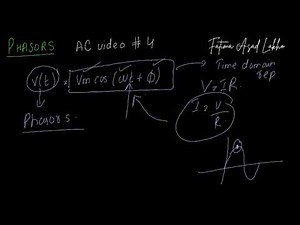 PHASORS AC video # 4
Fatima Asad
v(t) = Vm cos (ωt + φ)
Time domain rep.
Phasors.
V = IR.
I = V
R.